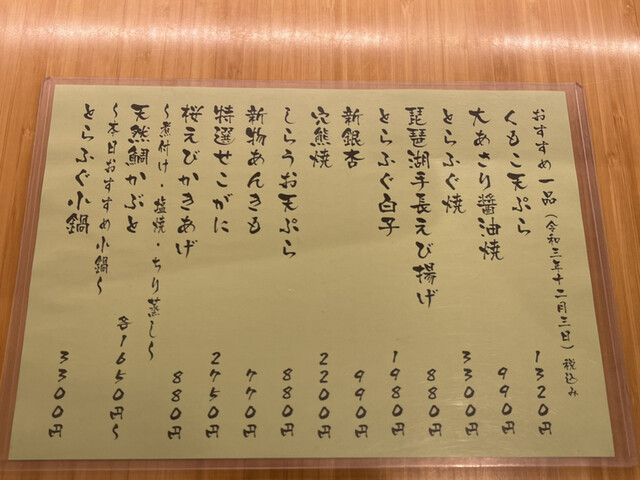 おすすめ一品(令和三年十二月三日)税込み
くもこ天ぷら 1320円
大あさり醬油焼 990円
とらふぐ焼 3300円
琵琶湖手長えび揚げ 880円
とらふぐ白子 1980円
新銀杏 990円
穴熊焼 2200円
しらうお天ぷら 880円
新物あんきも 770円
特選せこがに 2750円
桜えびかきあげ 880円
〜煮付け・塩焼・ちり蒸し〜
天然鯛かぶと 各1650円〜
〜本日おすすめ小鍋〜
とらふぐ小鍋 3300円